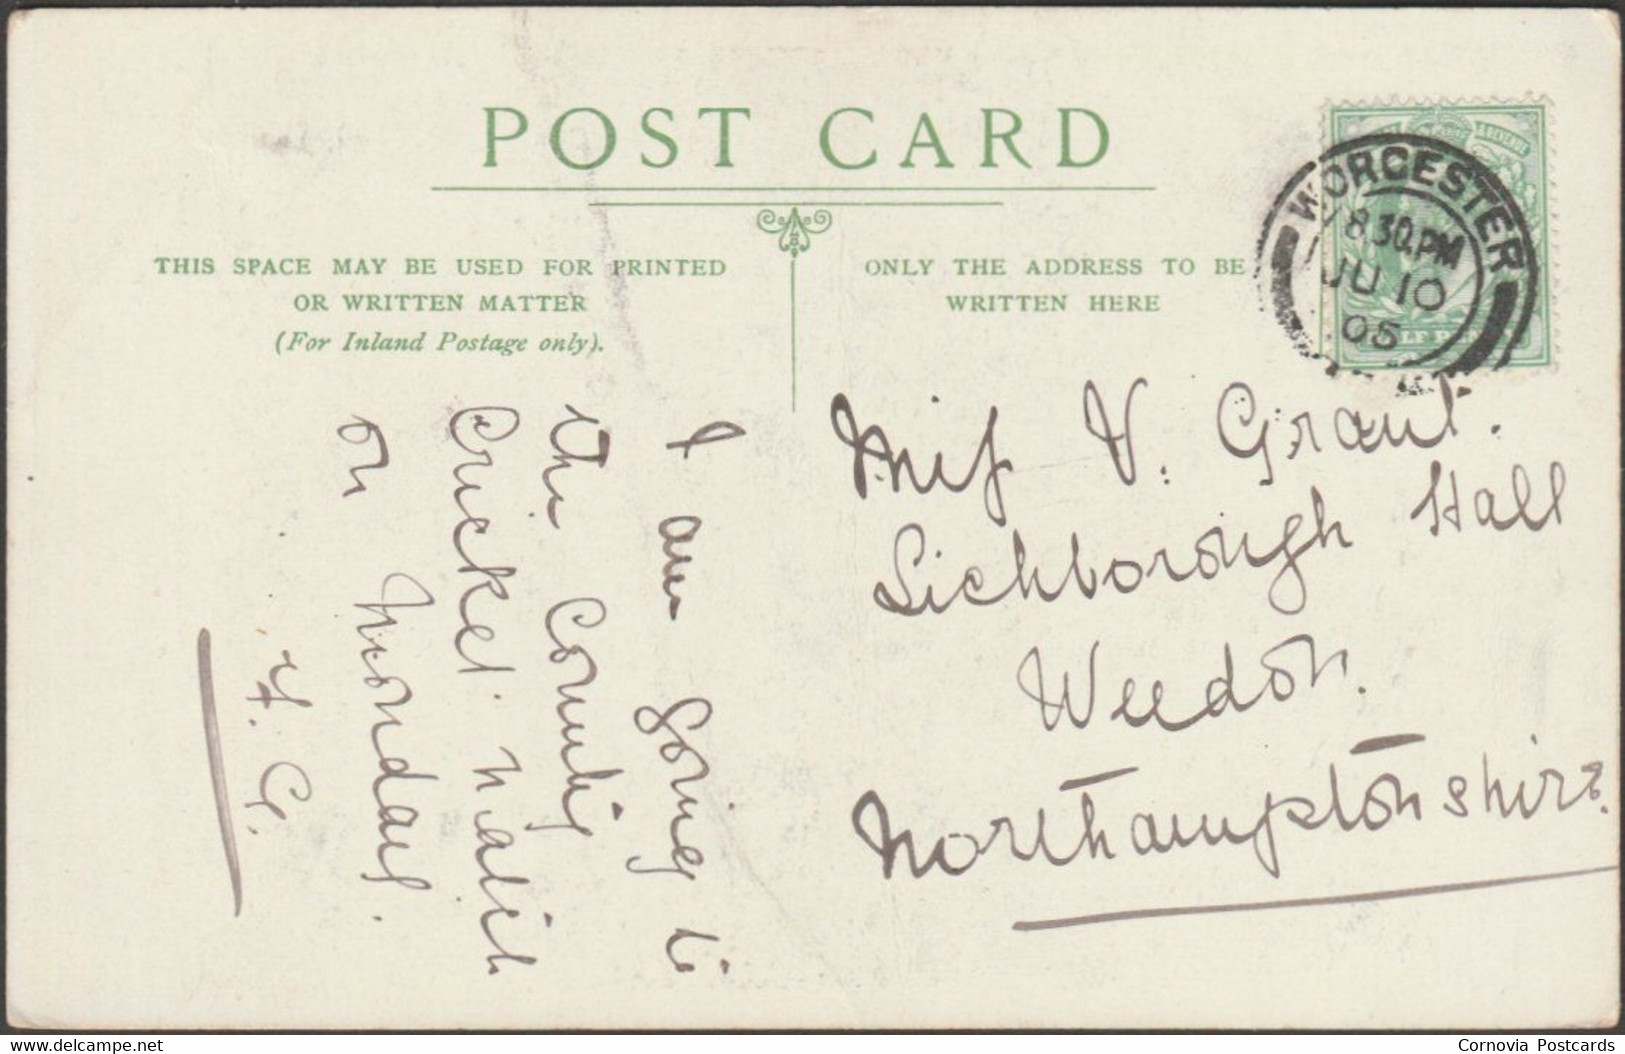 POST CARD
THIS SPACE MAY BE USED FOR PRINTED
OR WRITTEN MATTER
(For Inland Postage only).
ONLY THE ADDRESS TO BE
WRITTEN HERE
WORCESTER
8.30.PM
JU 10
05
I am going to
the County
Cricket match
on Monday.
G.
Miss V. Grant.
Lichborough Hall
Weedon.
Northamptonshire.
www.delcampe.net
Cornovia Postcards